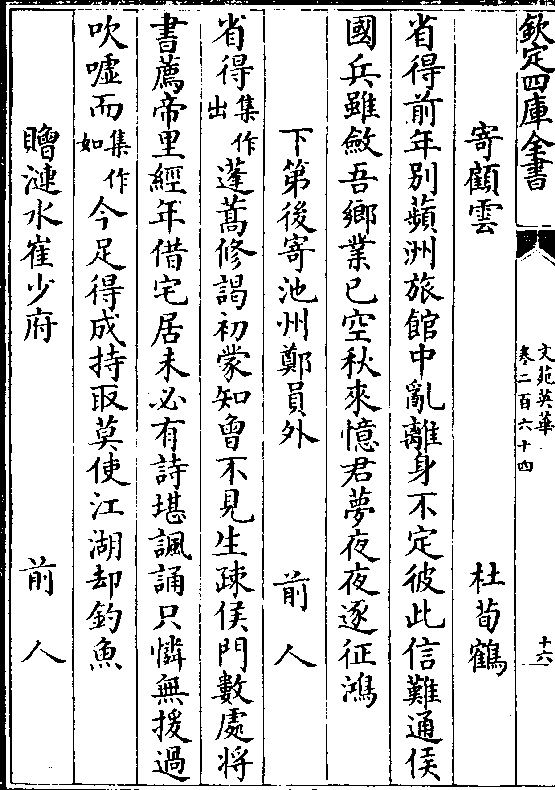 欽定四庫全書
文苑英華
卷二百六十四
十六
寄顧雲
杜荀鶴
省得前年別蘋洲旅館中亂離身不定彼此信難通侯
國兵雖斂吾鄉業已空秋來憶君夢夜夜逐征鴻
下第後寄池州鄭員外
前人
省得集作出蓬蒿修謁初蒙知曾不見生疎侯門數處將
書薦帝里經年借宅居未必有詩堪諷誦只憐無援過
吹噓而集作如今足得成持取莫使江湖却釣魚
贈漣水崔少府
前人